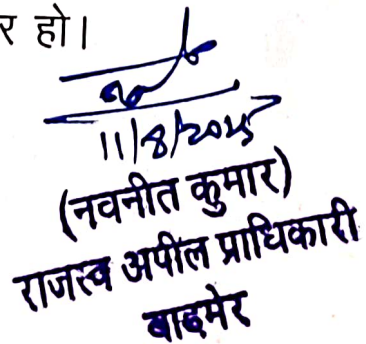 र हो।
11/8/2025
(नवनीत कुमार)
राजस्व अपील प्राधिकारी
बाड़मेर